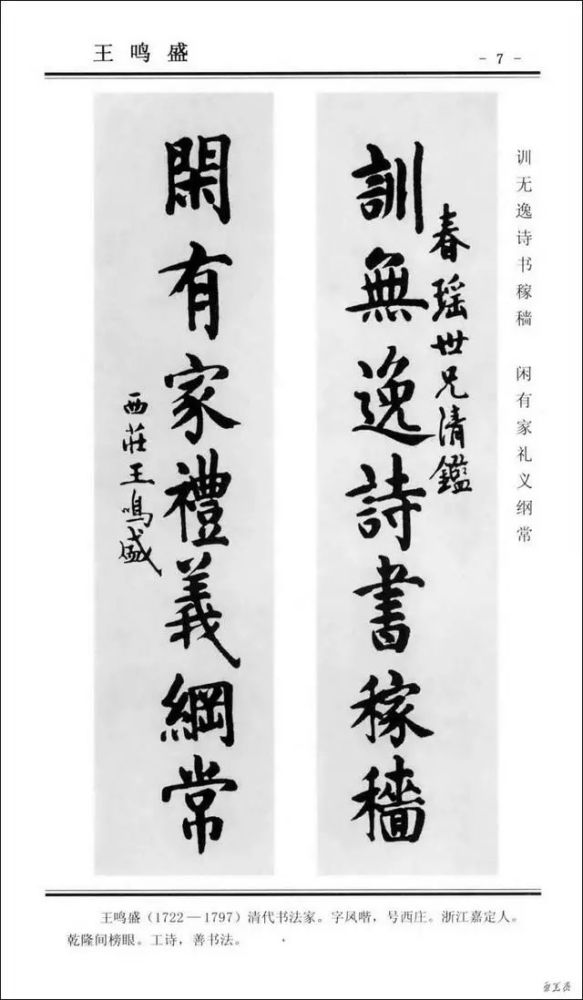 王鸣盛
- 7 -
训无逸诗书稼穑 闲有家礼义纲常
訓無逸詩書稼穡
春瑶世兄清鑑
閑有家禮義綱常
西莊王鳴盛
王鸣盛(1722—1797)清代书法家。字凤喈,号西庄。浙江嘉定人。
乾隆间榜眼。工诗,善书法。